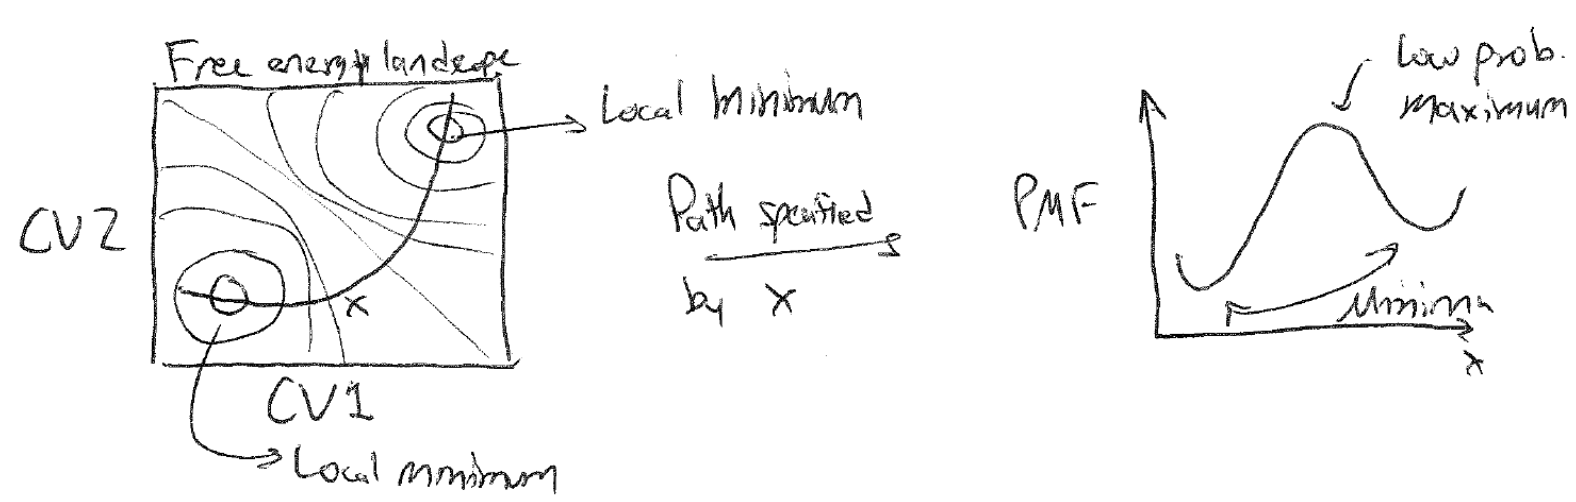 Free energy landscape
CV2
x
CV1
Local minimum
Local minimum
Path specified
by x
PMF
Low prob.
maximum
Minima
x